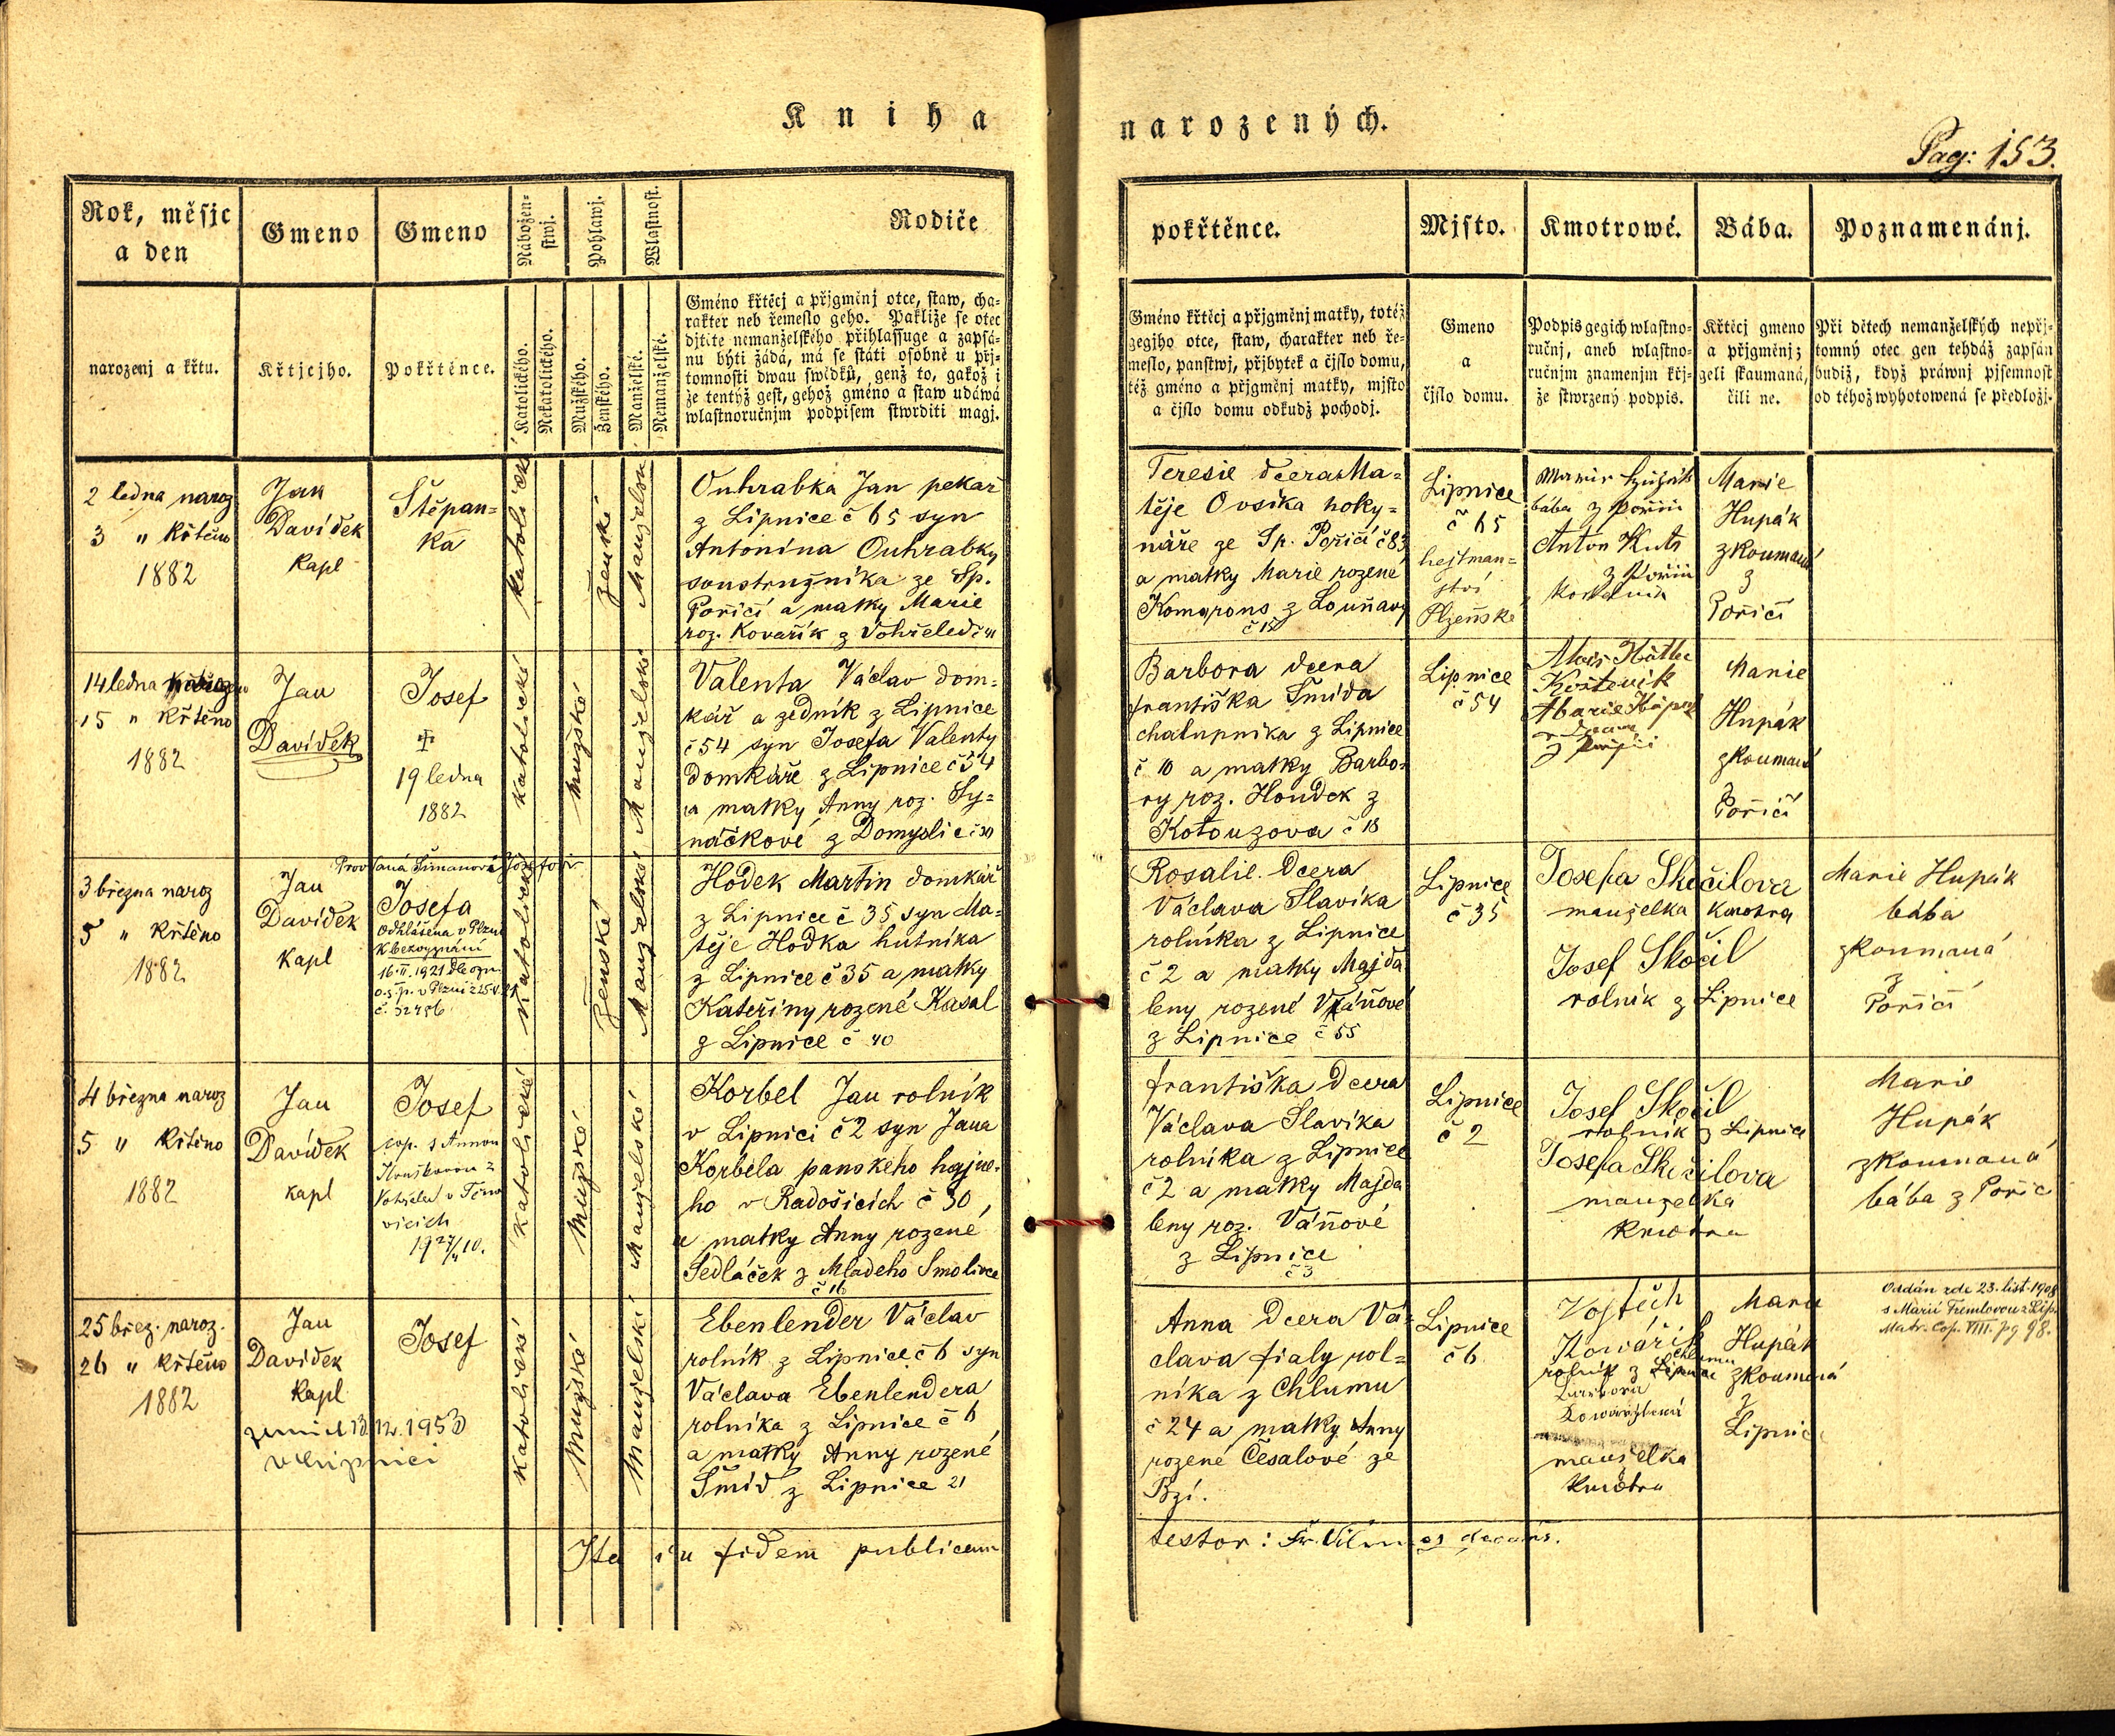 Kniha
narozených.
Pag: 153.
Rok, měsjc
a den
Gmeno
Gmeno
Nábožen-
stwj.
Pohlawj.
Wlastnost.
Rodiče
narozenj a křtu.
Křtjcjho.
Pokřtěnce.
Katolického.
Nekatolického.
Mužského.
Ženského.
Manželské.
Nemanželské.
Gméno křtěcj a přjgměnj otce, staw, cha-
rakter neb řemeslo geho. Pakliže se otec
djtěte nemanželského přihlassuge a zapsá-
nu býti žádá, má se státi osobně u přj-
tomnosti dwau swědků, genž to, gakož i
že tentýž gest, gehož gméno a staw udáwá
wlastnoručnjm podpisem stwrditi magj.
pokřtěnce.
Mjsto.
Kmotrowé.
Bába.
Poznamenánj.
Gméno křtěcj a přjgměnj matky, totéž
gegjho otce, staw, charakter neb ře-
meslo, panstwj, přjbytek a čjslo domu,
též gméno a přjgměnj matky, mjsto
a čjslo domu odkudž pochodj.
Gmeno
a
čjslo domu.
Podpis gegich wlastno-
ručnj, aneb wlastno-
ručnjm znamenjm křj-
že stwrzený podpis.
Křtěcj gmeno
a přjgměnj;
geli skaumaná,
čili ne.
Při dětech nemanželských nepřj-
tomný otec gen tehdáž zapsán
budiž, když práwnj pjsemnost
od téhož wyhotowená se předložj.
2 ledna naroz
3 " křtěno
1882
Jan
Davídek
kapl
Štěpan=
ka
katolické
ženské
Manželské
Ouhrabka Jan pekař
z Lipnice č 65 syn
Antonína Ouhrabky
soustružníka ze Sp.
Poříčí a matky Marie
roz. Kovařík z Vohřeled č 41
Teresie dcera Ma=
těje Ovsíka hoky=
náře ze Sp. Poříčí č 83
a matky Marie rozené
z Louňavy
č 15
Lipnice
č 65
hejtman=
ství
Plzeňské
bába z Poříčí
Anton
z Poříčí
Marie
Hupák
zkoumaná
z
Poříčí
14 ledna
15 " křtěno
1882
Jan
Davídek
Josef
✝
19 ledna
1882
katolické
mužské
Manželské
Valenta Václav dom=
kář a zedník z Lipnice
č 54 syn Josefa Valenty
domkáře z Lipnice č 54
a matky Anny roz. Sy=
náčkové z Domyslic č 30
Barbora dcera
františka Šmída
chalupníka z Lipnice
č 10 a matky Barbo-
ry roz. Houdek z
Kotouzova č 18
Lipnice
č 54
Marie
Hupák
zkoumaná
z
Poříčí
3 března naroz
5 " křtěno
1882
Jan
Davídek
kapl
Provdaná Šimanová
Josefa
odhlášena v Plzni
k bezvyznání
16.II.1921 dle ozn.
o.s.p. v Plzni z
č. 32456
katolické
ženské
Manželské
Hodek Martin domkář
z Lipnice č 35 syn Ma=
těje Hodka hutníka
z Lipnice č 35 a matky
Kateřiny rozené Kasal
z Lipnice č 40
Rosalie dcera
Václava Slavíka
rolníka z Lipnice
č 2 a matky Majda
leny rozené Váňové
z Lipnice č 55
Lipnice
č 35
Josefa Skočilova
manželka kmotra
Josef Skočil
rolník z Lipnice
Marie Hupák
bába
zkoumaná
z
Poříčí
4 března naroz
5 " křtěno
1882
Jan
Davídek
kapl
Josef
cop. s Annou
katolické
mužské
Manželské
Korbel Jan rolník
v Lipnici č 2 syn Jana
Korbela panského hajné-
ho v Radošicích č 30
a matky Anny rozené
Sedláček z Mladého Smolivce
č 16
františka dcera
Václava Slavíka
rolníka z Lipnice
č 2 a matky Majda
leny roz. Váňové
z Lipnice
č 3
Lipnice
č 2
Josef Skočil
rolník z Lipnice
Josefa Skočilova
manželka
kmotra
Marie
Hupák
zkoumaná
bába z Poříč
25 břez. naroz.
26 " křtěno
1882
Jan
Davídek
kapl
zemřel 13.12.1953
v Lipnici
Josef
katolické
mužské
Manželské
Ebenlender Václav
rolník z Lipnice č 6 syn
Václava Ebenlendera
rolníka z Lipnice č 6
a matky Anny rozené
Šmíd z Lipnice 21
Anna dcera Vá=
clava fialy rol=
níka z Chlumu
č 24 a matky Anny
rozené Česalové ze
Bzí.
Lipnice
č 6
Vojtěch
Kowářík
rolník z Chlumu
Barbora
Kowaříková
manželka
kmotra
Marie
Hupák
zkoumaná
z
Lipnice
Oddán zde 23. list. 1908
s Marií Tremlovou z Lip.
Matr. Cop. VIII. pg 98.
Ita in fidem publicam
testor: Fr. decanus.